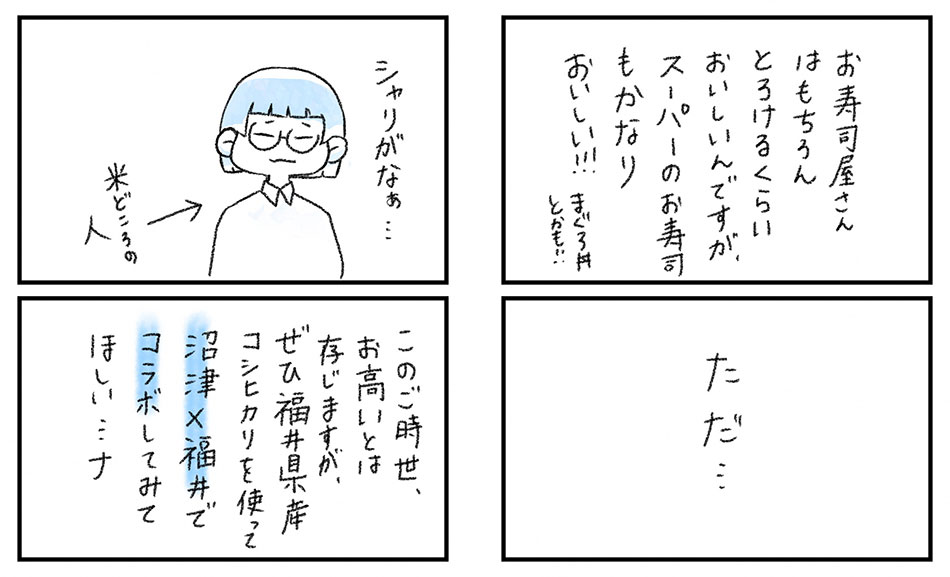 お寿司屋さん
はもちろん
とろけるくらい
おいしいんですが、
スーパーのお寿司
もかなり
おいしい!!!
まぐろ丼
とかも!!
ただ…
シャリがなぁ…
米どころの
人
このご時世、
お高いとは
存じますが、
ぜひ福井県産
コシヒカリを使って
沼津×福井で
コラボしてみて
ほしい…ナ